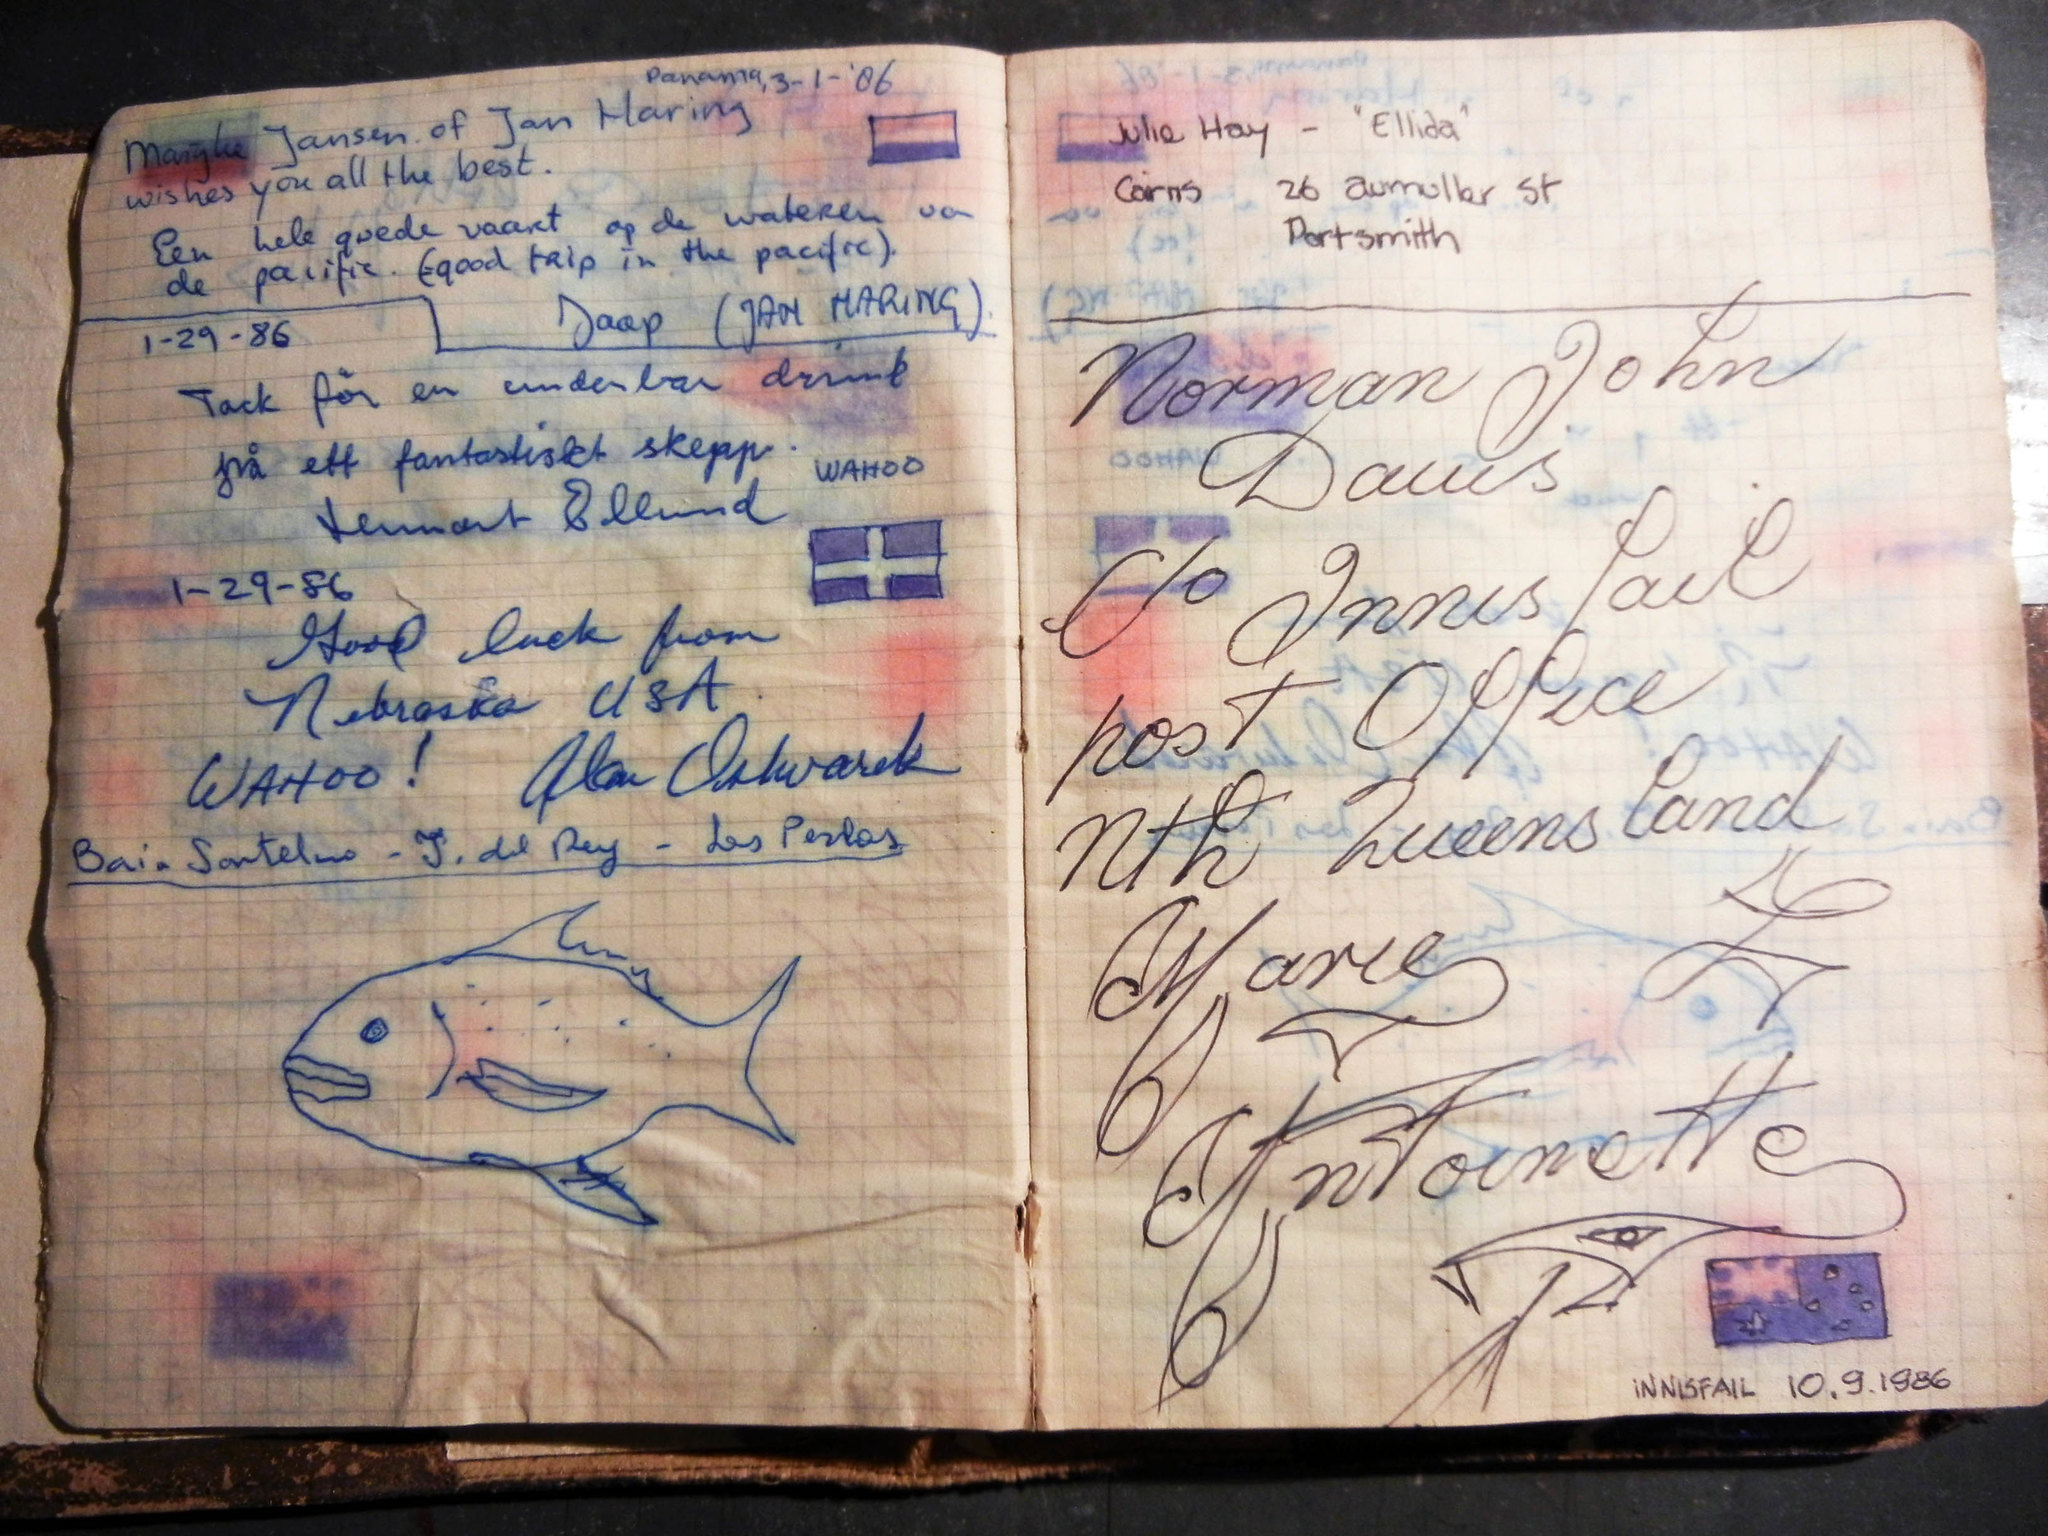 Panama, 3-1-'86
Marijke Jansen of Jan Haring
wishes you all the best.
Een hele goede vaart op de wateren va
de pacific. (=good trip in the pacific).
Jaap (JAN HARING).
1-29-86
Tack för en underbar drink
på ett fantastiskt skepp.
WAHOO
Lennart Edlund
1-29-86
Good luck from
Nebraska USA.
WAHOO! Alan
Baia Santelmo - I. del Rey - Las Perlas
Julie Hay - "Ellida"
Cairns 26 aumuller St
Portsmith
Norman John
Davis
C/o Innisfail
post Office
Nth Queensland
Marie
Antoinette
INNISFAIL 10.9.1986